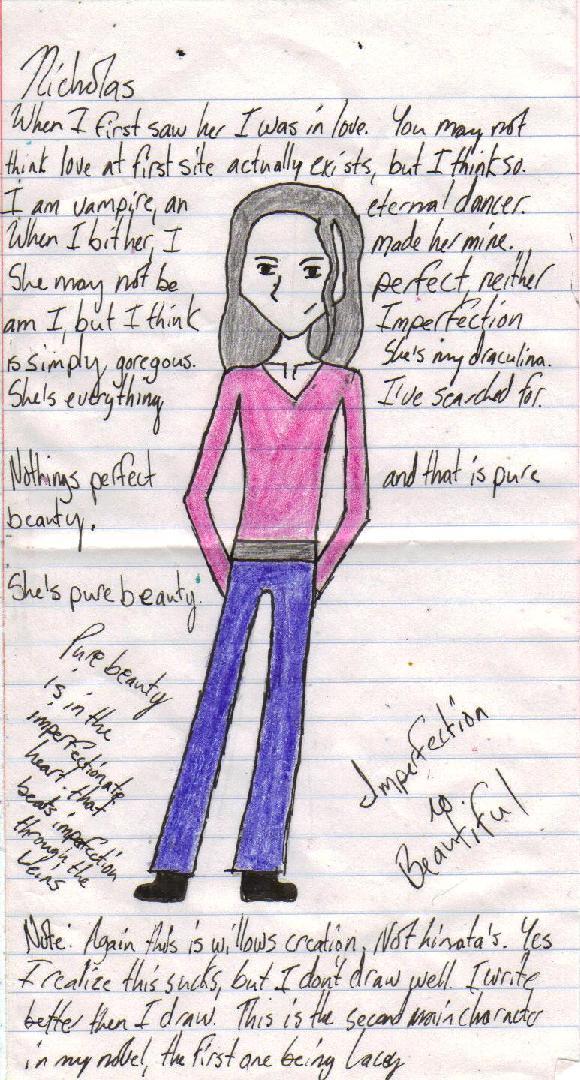 Nicholas
When I first saw her I was in love. You may not
think love at first site actually exists, but I think so.
I am vampire, an eternal dancer.
When I bit her, I made her mine.
She may not be perfect, neither
am I, but I think Imperfection
is simply goregous. She's my draculina.
She's everything I've searched for.
Nothings perfect and that is pure
beauty.
She's pure beauty.
Pure beauty
is in the
imperfectionate
heart that
beats imperfection
through the
veins
Imperfection
is
Beautiful
Note: Again this is willows creation, Not hinata's. Yes
I realize this sucks, but I don't draw well. I write
better then I draw. This is the second main character
in my novel, the first one being Lacey